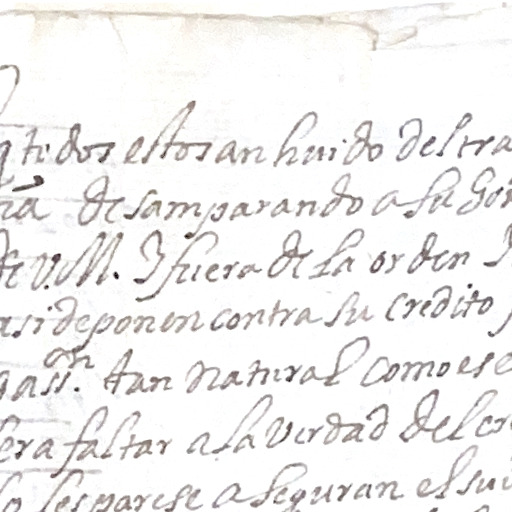 q ti dos estos an huido del tra
ria desamparando a su Gov
de V.M. Y fuera de la orden
asi deponen contra su credito
gass.on tan natural como es e
era faltar a la verdad del cre
lo les parese aseguran el sui